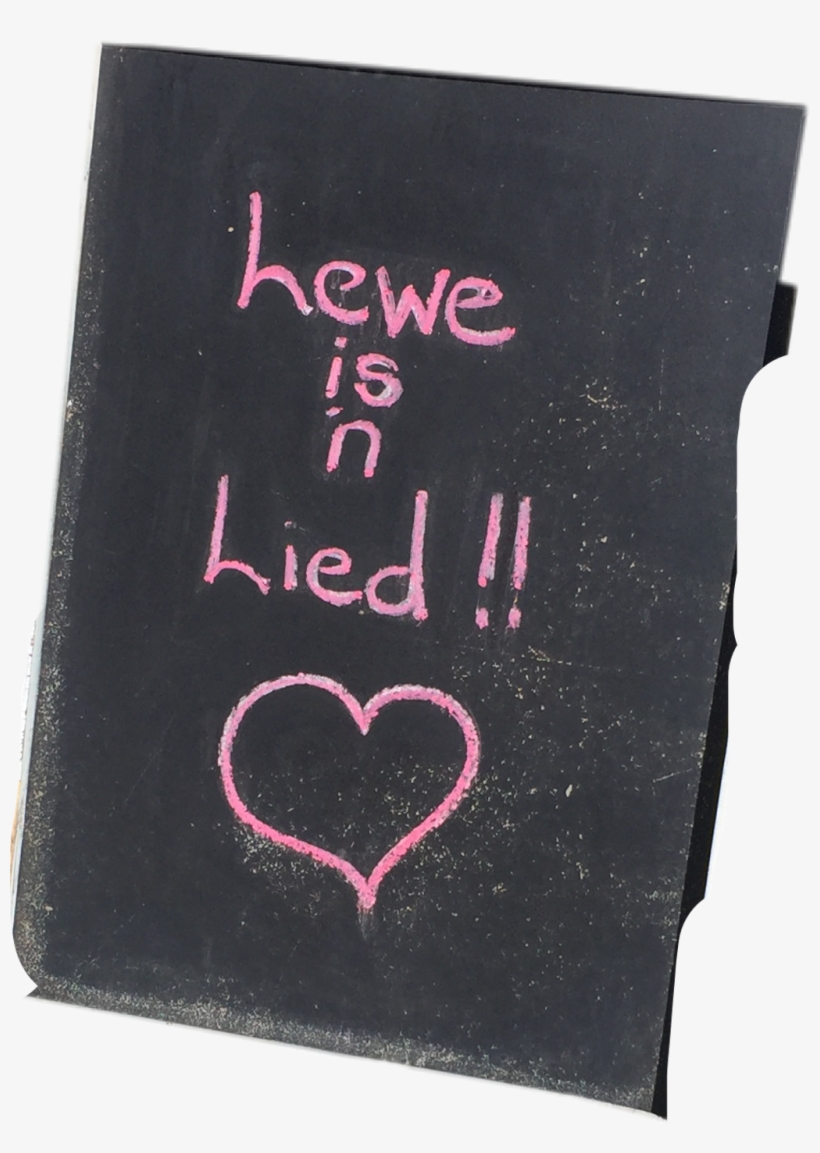 Lewe
is
'n
Lied !!